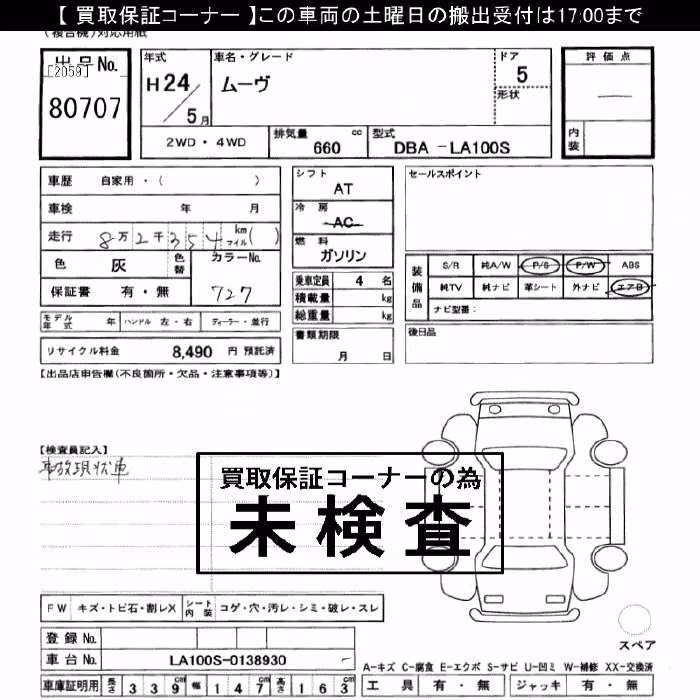 【 買取保証コーナー 】この車両の土曜日の搬出受付は17:00まで
(複合機)対応用紙
出品No.
[2059]
80707
年式
H24/5月
車名・グレード
ムーヴ
ドア
5
形状
2WD・4WD
排気量 660 cc
型式 DBA -LA100S
評価点
―
内装
車歴 自家用・( )
車検 年 月
走行 8万2千354 km マイル( )
色 灰 色替
カラーNo.
727
保証書 有・無
モデル年式 年 ハンドル 左・右 ディーラー・並行
リサイクル料金 8,490 円 預託済
シフト
AT
冷房
AC
燃料
ガソリン
乗車定員 4 名
積載量 kg
総重量 kg
書類期限
月 日
セールスポイント
装備品
S/R 純A/W P/S P/W ABS
純TV 純ナビ 革シート 外ナビ エアB
ナビ型番:
後日品
【出品店申告欄(不良箇所・欠品・注意事項等)】
【検査員記入】
事故現状車
買取保証コーナーの為
未検査
FW キズ・トビ石・割レX シート内装 コゲ・穴・汚レ・シミ・破レ・スレ
登録No.
車台No. LA100S-0138930
車庫証明用 長さ 339 幅 147 高さ 163
スペア
A-キズ C-腐食 E-エクボ S-サビ U-凹ミ W-補修 XX-交換済
工具 有・無 ジャッキ 有・無